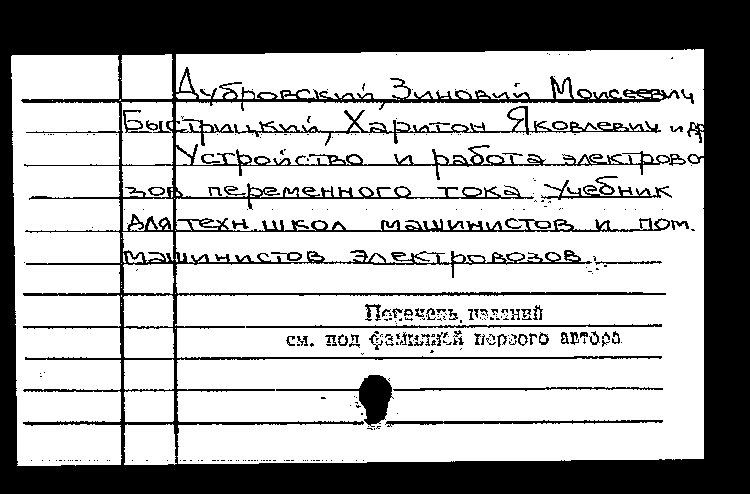 Дубровский, Зиновий Моисеевич
Быстрицкий, Харитон Яковлевич и др
Устройство и работа электрово-
зов переменного тока Учебник
для техн. школ машинистов и пом.
машинистов электровозов.
Перечень изданий
см. под фамилией первого автора